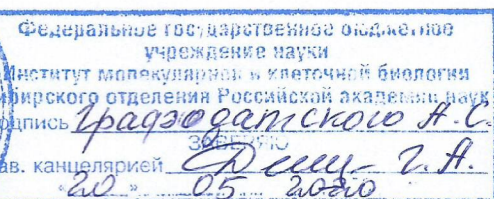 Федеральное государственное бюджетное
учреждение науки
Институт молекулярной и клеточной биологии
ибирского отделения Российской академии наук
одпись Графодатского А.С.
ЗАВЕРЯЮ
ав. канцелярией Г.А.
"20" 05 2020